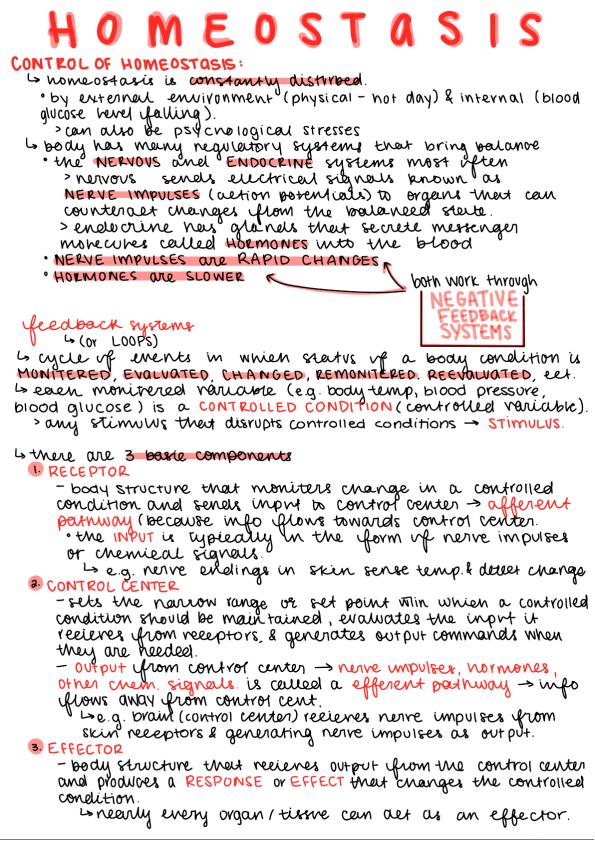 HOMEOSTASIS
CONTROL OF HOMEOSTASIS:
↳ homeostasis is constantly disturbed.
• by external environment (physical - hot day) & internal (blood
glucose level falling).
> can also be psycnological stresses
↳ body has many regulatory systems that bring balance
• the NERVOUS and ENDOCRINE systems most often
> nervous sends electrical signals known as
NERVE IMPULSES (action potentials) to organs that can
counteract changes from the balanced state.
> endocrine has glands that secrete messenger
molecules called HORMONES into the blood
• NERVE IMPULSES are RAPID CHANGES
• HORMONES are SLOWER
both work through
NEGATIVE
FEEDBACK
SYSTEMS
feedback systems
↳ (or LOOPS)
↳ cycle of events in which status of a body condition is
MONITERED, EVALUATED, CHANGED, REMONITERED, REEVALUATED, ect.
↳ each monitered variable (e.g. body temp, blood pressure,
blood glucose) is a CONTROLLED CONDITION (controlled variable).
> any stimulus that disrupts controlled conditions → STIMULUS.
↳ there are 3 basic components
1. RECEPTOR
- body structure that moniters change in a controlled
condition and sends input to control center → afferent
pathway (because info flows towards control center.
• the INPUT is typically in the form of nerve impulses
or chemical signals.
↳ e.g. nerve endings in skin sense temp. & detect change
2. CONTROL CENTER
- sets the narrow range or set point w/in which a controlled
condition should be maintained, evaluates the input it
recieves from receptors, & generates output commands when
they are needed.
- OUTPUT from control center → nerve impulses, hormones,
other chem. signals. is called a efferent pathway → info
flows away from control cent.
↳ e.g. brain (control center) recieves nerve impulses from
skin receptors & generating nerve impulses as output.
3. EFFECTOR
- body structure that recieves output from the control center
and produces a RESPONSE or EFFECT that changes the controlled
condition.
↳ nearly every organ / tissue can act as an effector.